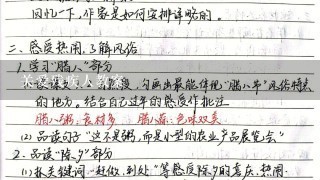 回忆一下,作家是如何安排详略的。
二、感受热闹,了解风俗
1.学习“腊八”部分
读课文,勾画出最能体现“腊八节”风俗特点
的地方。结合自己过年的感受作批注
腊八粥:食材多 腊八蒜:色味双美
(2)品读句子“这不是粥,而是小型的农业产品展览会”
2.品读“除夕”部分
(1)抓关键词“赶做、到处”等感受除夕的喜庆、热闹